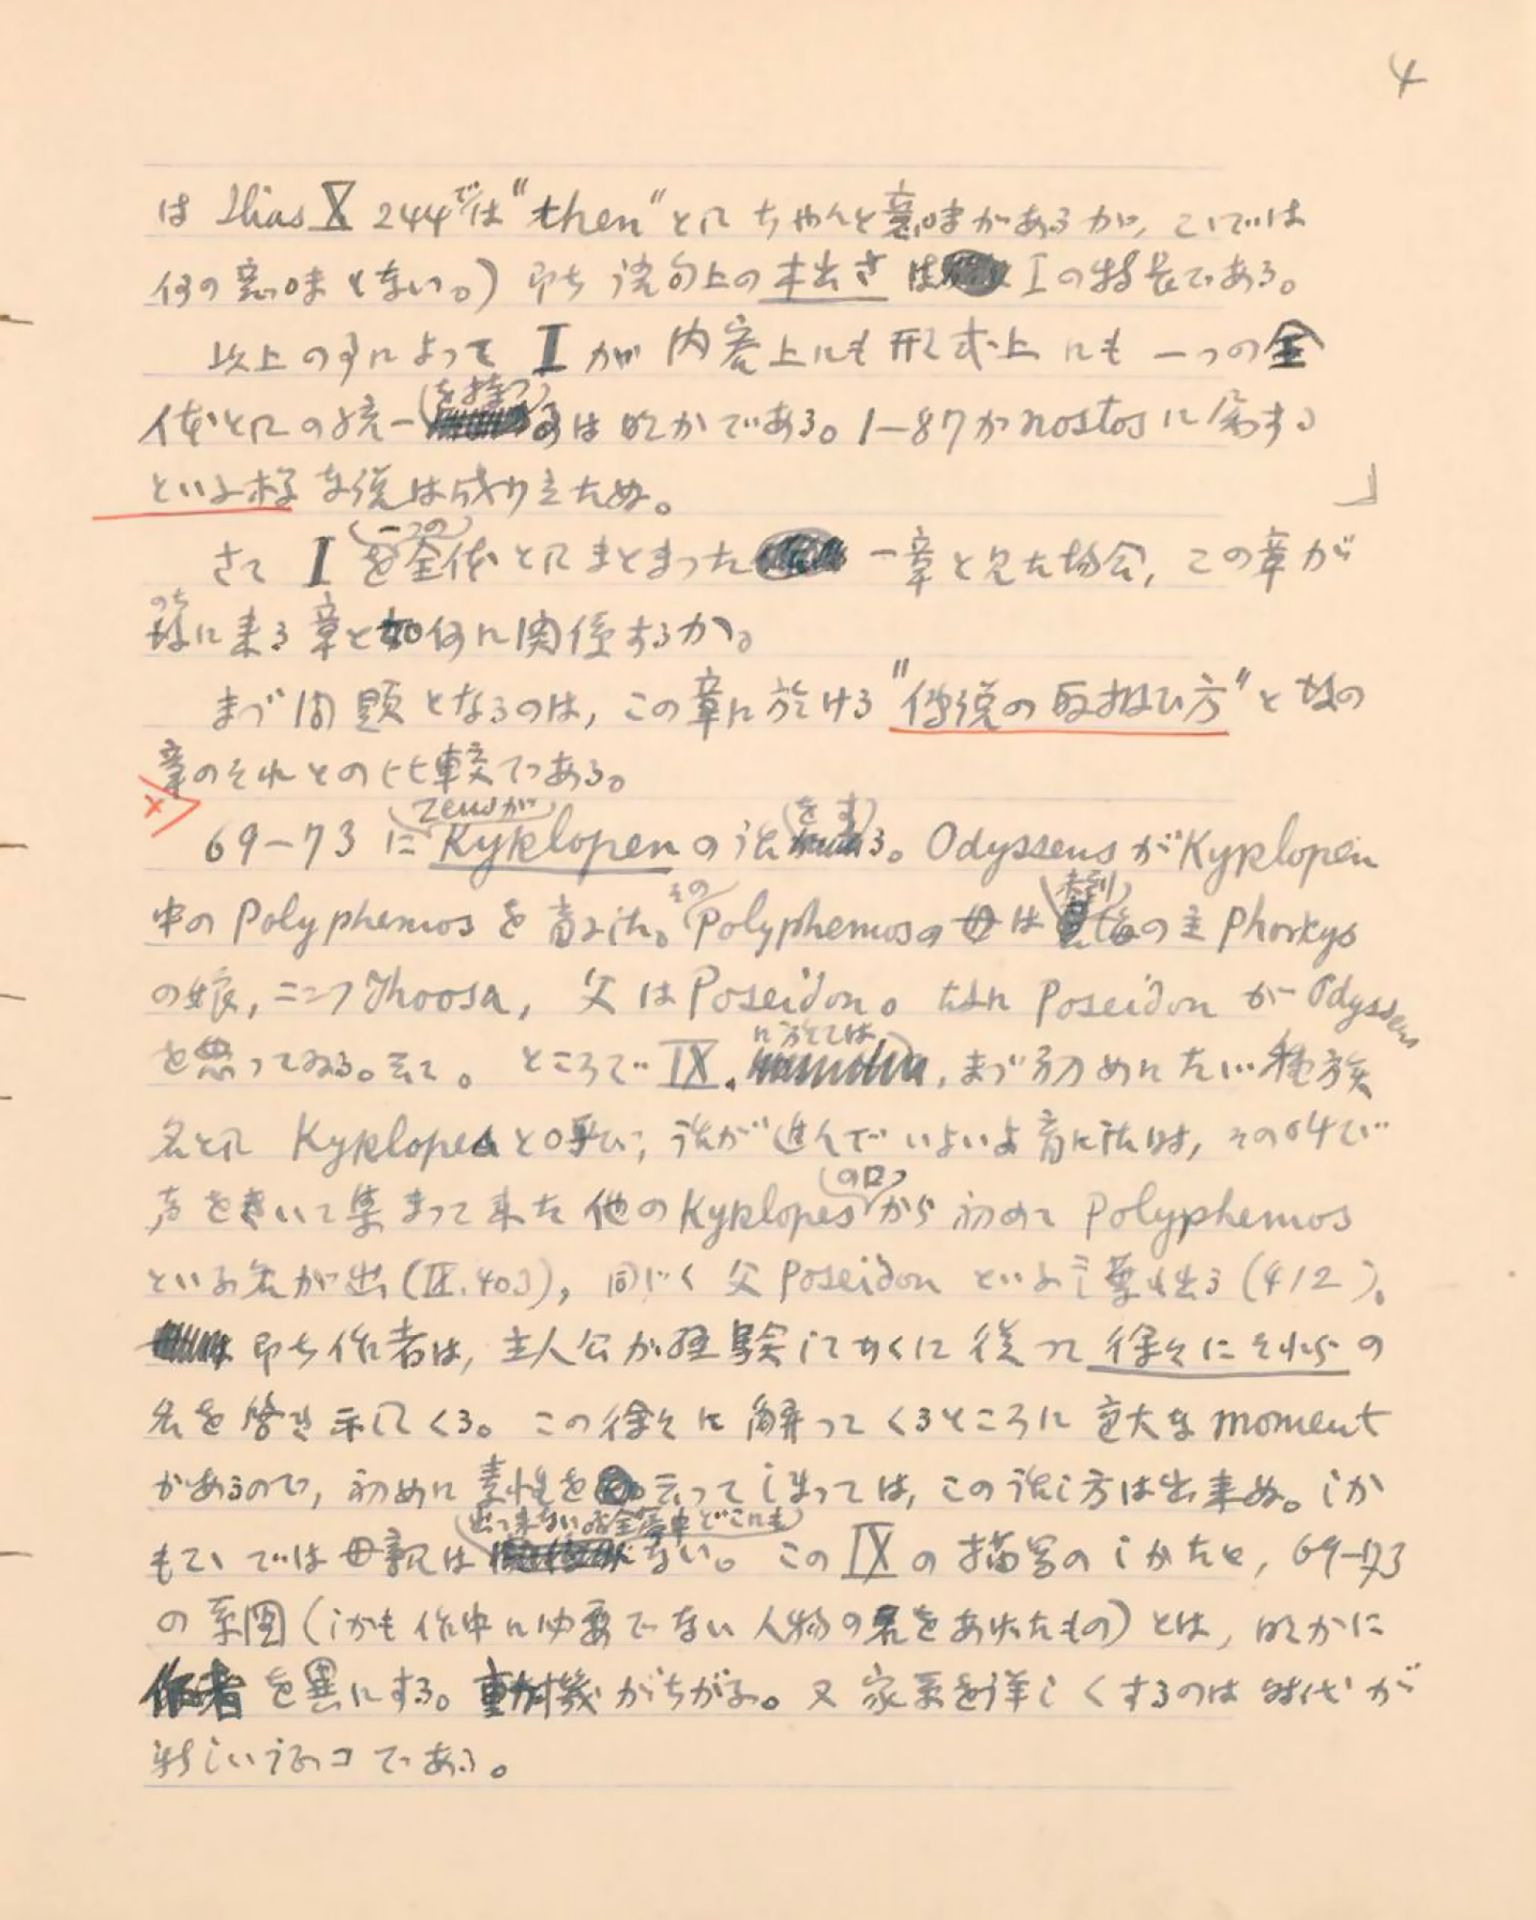 4
は Ilias X 244では "then" として ちゃんと意味があるが、こゝでは
何の意味もない。) 即ち 語句上の は Iの特長である。
以上の事によって I が 内容上にも 形式上 にも 一つの全
体としての統一(を持つ)事は明かである。1-87がnostosに属する
といふ様な説は成り立たぬ。 」
さて I を(一つの)全体としてまとまった 一章と見た場合, この章が
後(のち)に来る章と如何に関係するか。
まづ問題となるのは, この章に於ける "伝説の取扱ひ方" と 後の
章のそれとの比較である。
69-73 に(Zeusが) Kyklopen の話(をす)る。OdysseusがKyklopen
中の Polyphemos を 盲にした。その Polyphemosの母は 海の主 Phorkys
の娘, ニンフ Thoosa, 父は Poseidon。 Poseidon が Odysseus
を思ってゐる。云々。 ところで IX (に於ては), まづ初めにたゞ種族
名として Kyklopen と呼び, 話が進んでいよいよ盲にした時は, その叫び
声をきいて集まって来た 他の Kyklopes (の口)から 初めて Polyphemos
といふ名が出 (IX. 403), 同じく 父 Poseidon といふ言葉も出る (412)。
即ち作者は, 主人公が経験してゆくに従って 徐々にそれらの
名を啓示してくる。この徐々に解ってくるところに 重大な moment
があるので, 初めに素性を云ってしまっては, この話し方は出来ぬ。しか
もこゝでは 母親は(出て来ない。全篇中どこにも)ない。このIXの描写のしかたと, 69-73
の系図 (しかも作中に必要でない人物の名をあげたもの) とは, 明かに
作者を異にする。動機がちがふ。又 家系を詳しくするのは 時代が
新しい証コである。